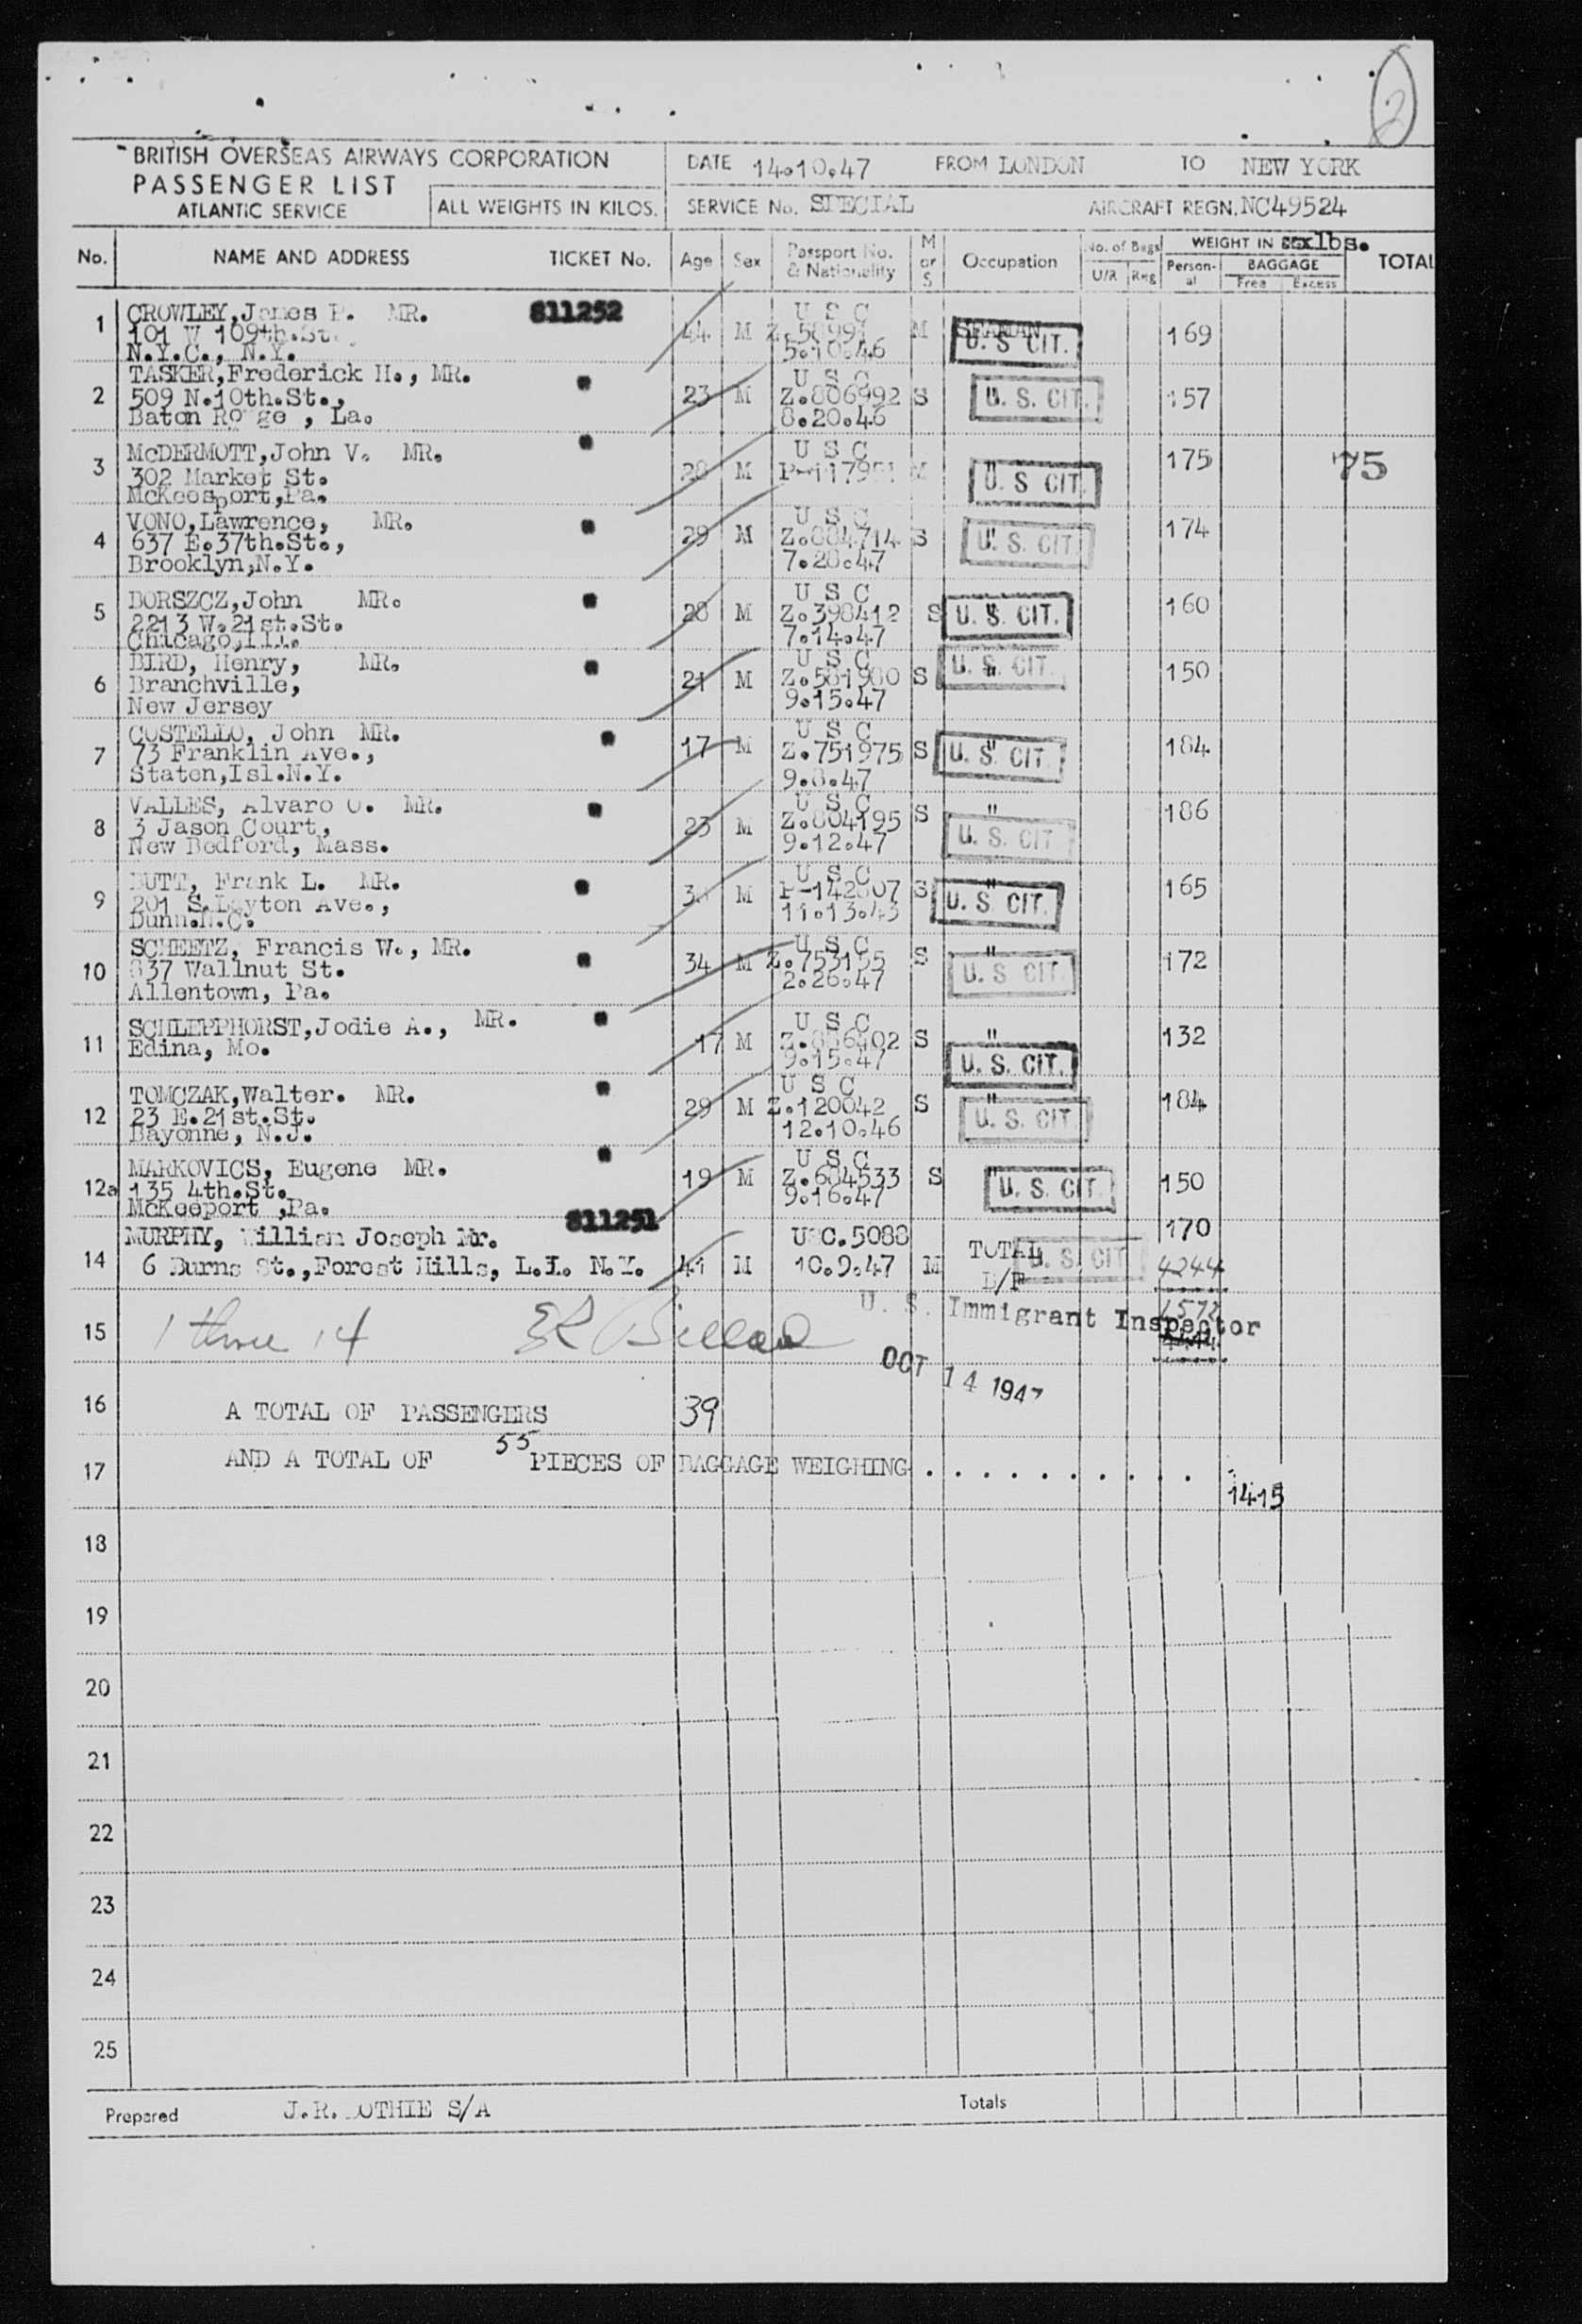 2
BRITISH OVERSEAS AIRWAYS CORPORATION
PASSENGER LIST
ATLANTIC SERVICE
ALL WEIGHTS IN KILOS.
DATE 14.10.47 FROM LONDON TO NEW YORK
SERVICE No. SPECIAL AIRCRAFT REGN. NC49524
No. NAME AND ADDRESS TICKET No. Age Sex Passport No. & Nationality M or S Occupation No. of Bags U/R Reg WEIGHT IN lbs. Personal BAGGAGE Free Excess TOTAL
1 CROWLEY, James P. MR. 811252 44 M U S C M SEAMAN U. S CIT. 169
101 W 109th.St.
N.Y.C., N.Y. 5.10.46
2 TASKER,Frederick H., MR. " 23 M U S C S " U. S. CIT. 157
509 N.10th.St., Z.806992
Baton Rouge , La. 8.20.46
3 McDERMOTT,John V. MR. " 28 M U S C M " U. S CIT. 175 75
302 Market St.
McKeesport,Pa.
4 VONO,Lawrence, MR. " 29 M U S C S " U. S. CIT. 174
637 E.37th.St., Z.884714
Brooklyn,N.Y. 7.28.47
5 DORSZCZ,John MR. " 28 M U S C S " U. S. CIT. 160
2213 W.21st.St. Z.398412
Chicago,Ill. 7.14.47
6 BIRD, Henry, MR. " 21 M U S C S " U. S. CIT. 150
Branchville, Z.581980
New Jersey 9.15.47
7 COSTELLO, John MR. " 17 M U S C S " U. S. CIT. 184
73 Franklin Ave., Z.751975
Staten,Isl.N.Y. 9.8.47
8 VALLES, Alvaro O. MR. " 23 M U S C S " U. S. CIT 186
3 Jason Court, Z.804195
New Bedford, Mass. 9.12.47
9 BUTT, Frank L. MR. " M U S C S " U. S. CIT. 165
201 S.Layton Ave., P-142807
Dunn.N.C. 11.13.43
10 SCHEETZ, Francis W., MR. " 34 M U S C S " U. S CIT. 172
837 Wallnut St. Z.753155
Allentown, Pa. 2.26.47
11 SCHLEPPHORST,Jodie A., MR. " 17 M U S C S " U. S. CIT. 132
Edina, Mo.
9.15.47
12 TOMCZAK,Walter. MR. " 29 M U S C S " U. S. CIT. 184
23 E.21st.St. Z.120042
Bayonne, N.J. 12.10.46
12a MARKOVICS, Eugene MR. " 19 M U S C S " U. S. CIT. 150
135 4th.St. Z.684533
McKeeport ,Pa. 9.16.47
14 MURPHY, William Joseph Mr. 811251 41 M USC.5088 M 170
6 Burns St.,Forest Hills, L.I. N.Y. 10.9.47 TOTAL U. S. CIT 4244
B/F
15 1 thru 14 U. S. Immigrant Inspector
OCT 14 1947
16 A TOTAL OF PASSENGERS 39
17 AND A TOTAL OF 55 PIECES OF BAGGAGE WEIGHING . . . . . . . . . . 1415
18
19
20
21
22
23
24
25
Prepared J.R. S/A Totals